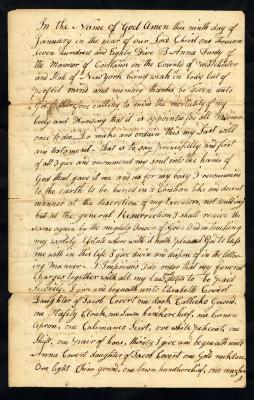 In the Name of God Amen this ninth day of
January in the year of our Lord Christ one thousand
seven hundred and Eighty Five I Anna Purdy of
the Mannor of Cortlandt in the County of Westchester
and State of New York being weak in body but of
perfect mind and memory thanks be given unto
God therefore calling to mind the mortality of my
body and knowing that it is appointed for all
once to die Do make and ordain this my last will
and testament that is to say principally and first
of all I give and recommend my soul into the hands of
God that gave it and as for my body I recommend
to the Earth to be buried in a Christian like and decent
manner at the discretion of my Executors, not doubting
but at the general Resurrection I shall receive the
same again by the mighty Power of God And as touching
my worldly Estate where with it hath pleased God to bless
me with in this life I give devise and dispose of in the follow
ing Manner I order that my funeral
Charges together with all my just debts to be paid
Secondly I give and bequeath unto Elizabeth Covert
Daughter of Jacob Covert one dark Callicho Gownd
one Cloak, one Lawn handkerchief, one
Apron, one Calamanco Scirt, one white
Shift, one pair of hoes, thirdly I give and bequeath unto
Anna Covert daughter of Jacob Covert one Gold necklace
One light gound, one lawn handkerchief, one muslin